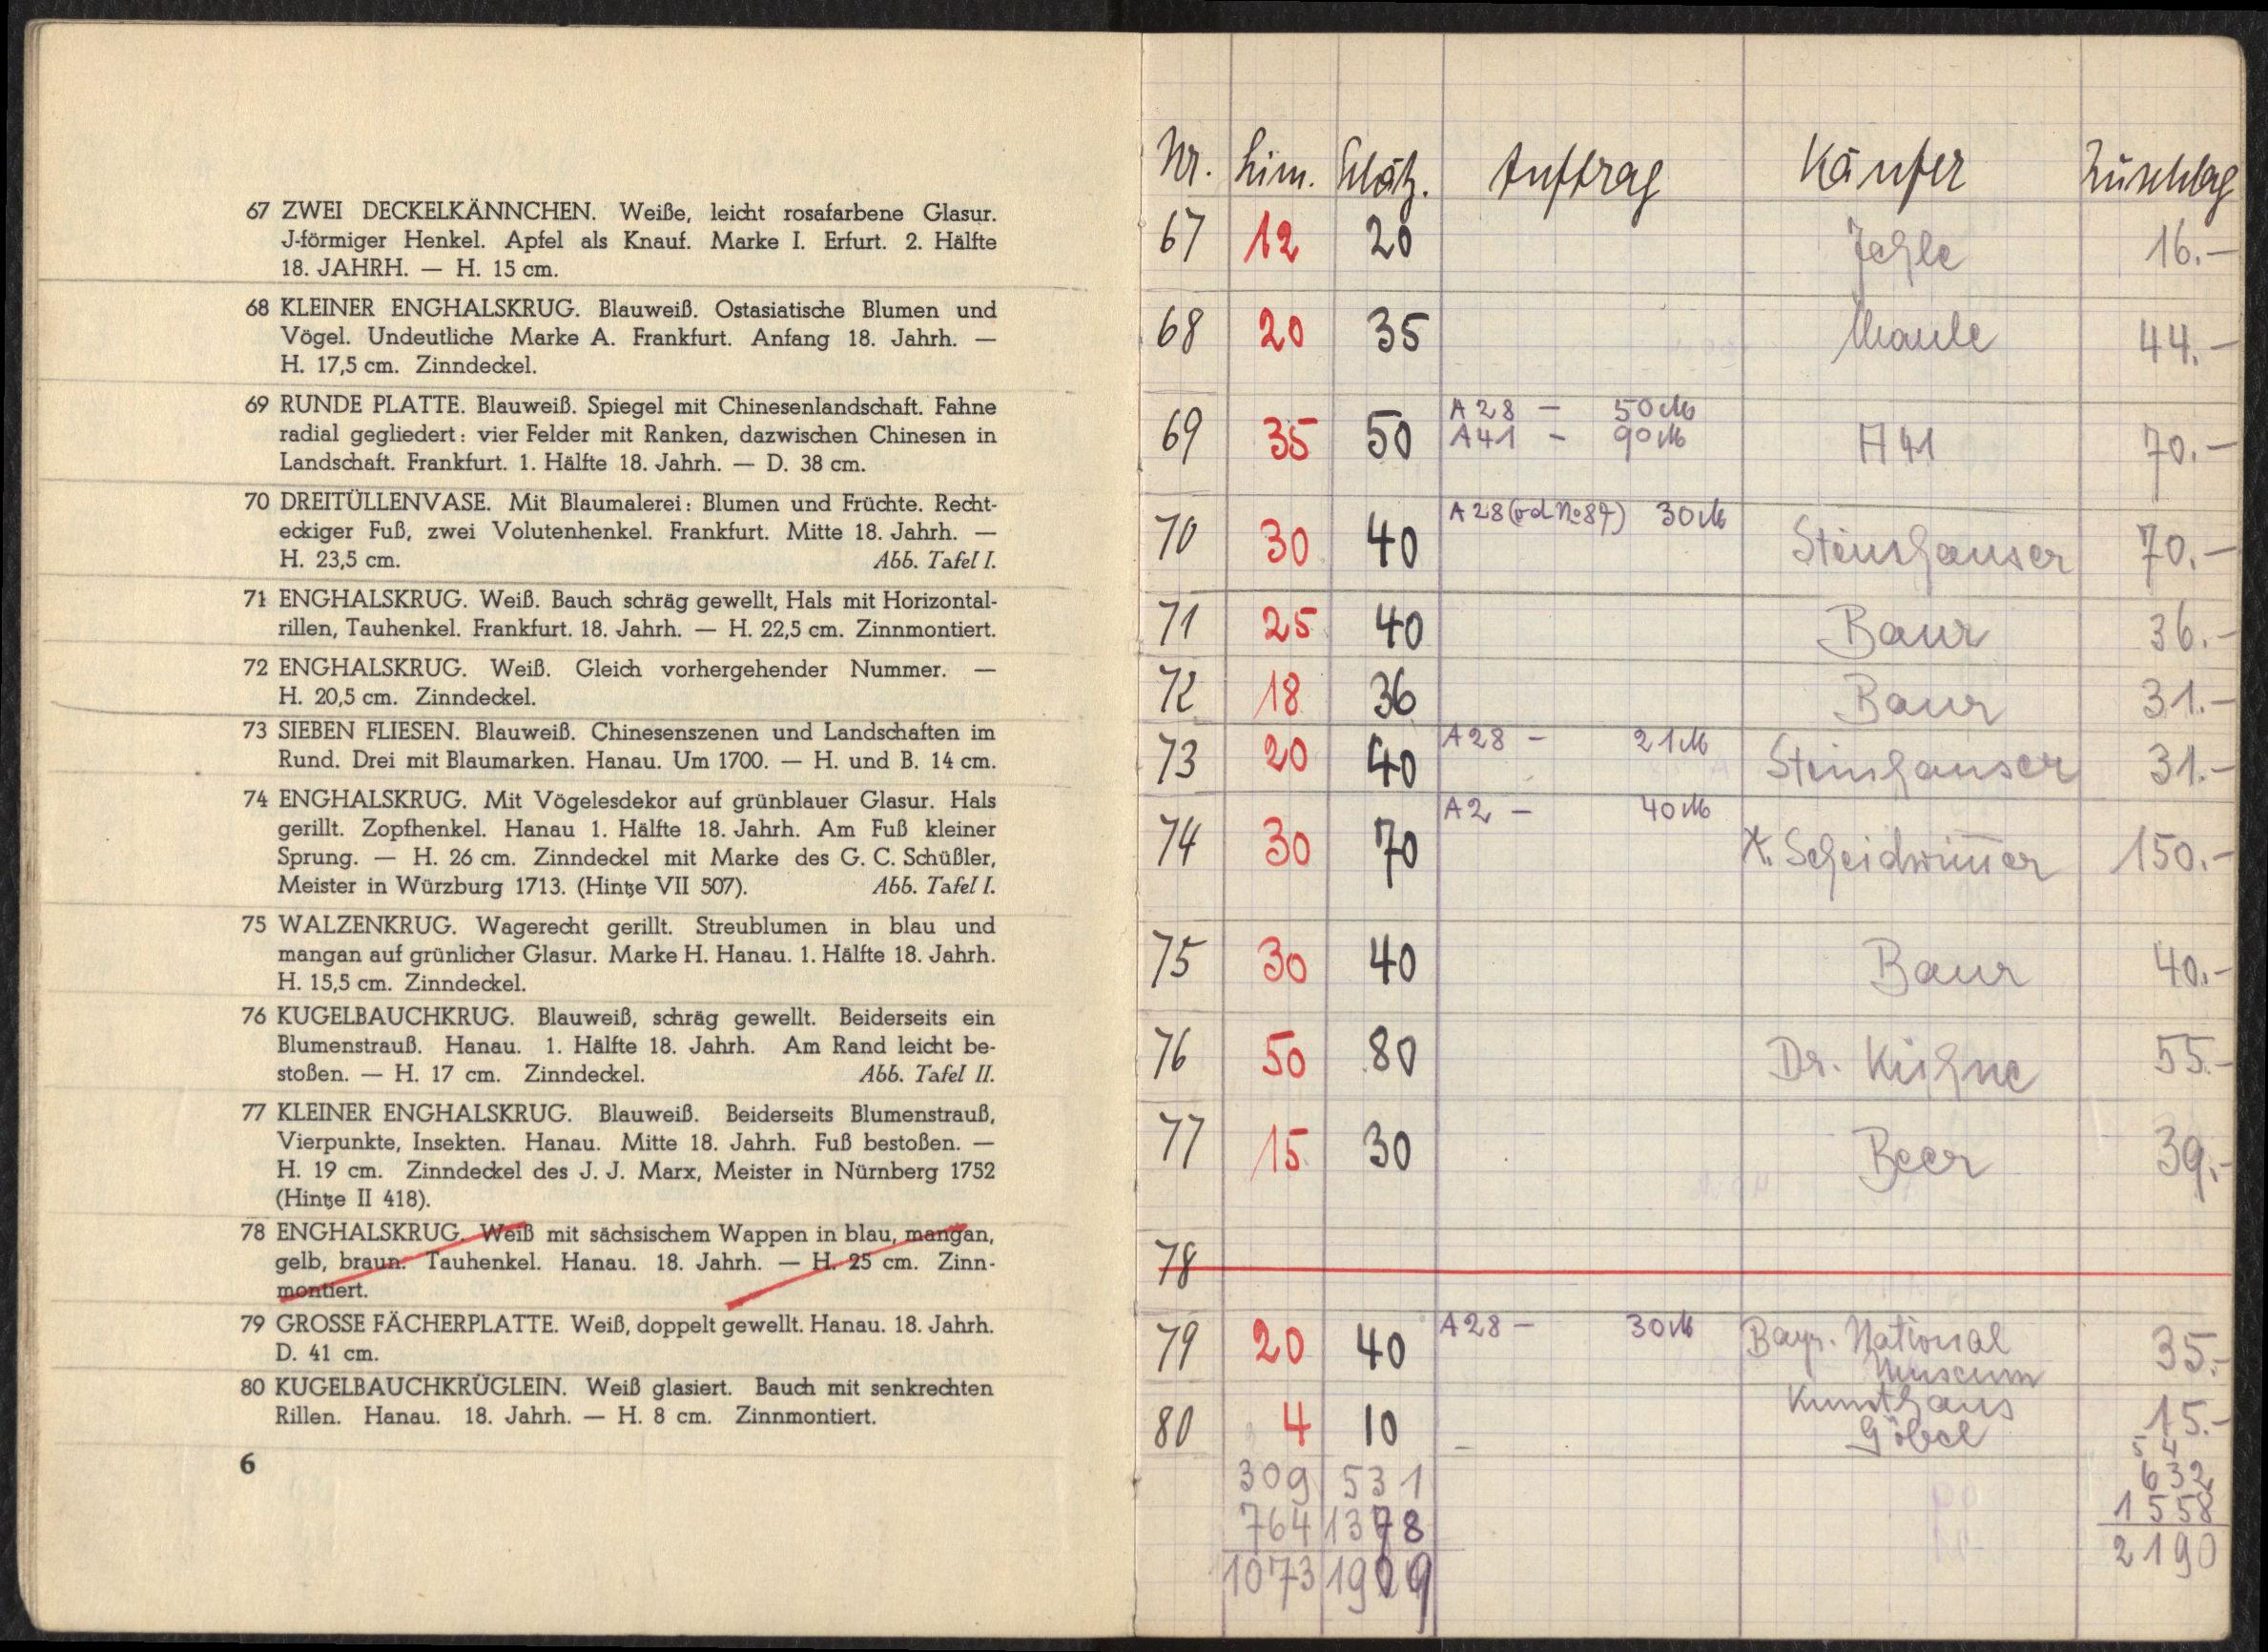 67 ZWEI DECKELKÄNNCHEN. Weiße, leicht rosafarbene Glasur.
J-förmiger Henkel. Apfel als Knauf. Marke I. Erfurt. 2. Hälfte
18. JAHRH. — H. 15 cm.
68 KLEINER ENGHALSKRUG. Blauweiß. Ostasiatische Blumen und
Vögel. Undeutliche Marke A. Frankfurt. Anfang 18. Jahrh. —
H. 17,5 cm. Zinndeckel.
69 RUNDE PLATTE. Blauweiß. Spiegel mit Chinesenlandschaft. Fahne
radial gegliedert: vier Felder mit Ranken, dazwischen Chinesen in
Landschaft. Frankfurt. 1. Hälfte 18. Jahrh. — D. 38 cm.
70 DREITÜLLENVASE. Mit Blaumalerei: Blumen und Früchte. Recht-
eckiger Fuß, zwei Volutenhenkel. Frankfurt. Mitte 18. Jahrh. —
H. 23,5 cm. Abb. Tafel I.
71 ENGHALSKRUG. Weiß. Bauch schräg gewellt, Hals mit Horizontal-
rillen, Tauhenkel. Frankfurt. 18. Jahrh. — H. 22,5 cm. Zinnmontiert.
72 ENGHALSKRUG. Weiß. Gleich vorhergehender Nummer. —
H. 20,5 cm. Zinndeckel.
73 SIEBEN FLIESEN. Blauweiß. Chinesenszenen und Landschaften im
Rund. Drei mit Blaumarken. Hanau. Um 1700. — H. und B. 14 cm.
74 ENGHALSKRUG. Mit Vögelesdekor auf grünblauer Glasur. Hals
gerillt. Zopfhenkel. Hanau 1. Hälfte 18. Jahrh. Am Fuß kleiner
Sprung. — H. 26 cm. Zinndeckel mit Marke des G. C. Schüßler,
Meister in Würzburg 1713. (Hintze VII 507). Abb. Tafel I.
75 WALZENKRUG. Wagerecht gerillt. Streublumen in blau und
mangan auf grünlicher Glasur. Marke H. Hanau. 1. Hälfte 18. Jahrh.
H. 15,5 cm. Zinndeckel.
76 KUGELBAUCHKRUG. Blauweiß, schräg gewellt. Beiderseits ein
Blumenstrauß. Hanau. 1. Hälfte 18. Jahrh. Am Rand leicht be-
stoßen. — H. 17 cm. Zinndeckel. Abb. Tafel II.
77 KLEINER ENGHALSKRUG. Blauweiß. Beiderseits Blumenstrauß,
Vierpunkte, Insekten. Hanau. Mitte 18. Jahrh. Fuß bestoßen. —
H. 19 cm. Zinndeckel des J. J. Marx, Meister in Nürnberg 1752
(Hintze II 418).
78 ENGHALSKRUG. Weiß mit sächsischem Wappen in blau, mangan,
gelb, braun. Tauhenkel. Hanau. 18. Jahrh. — H. 25 cm. Zinn-
montiert.
79 GROSSE FÄCHERPLATTE. Weiß, doppelt gewellt. Hanau. 18. Jahrh.
D. 41 cm.
80 KUGELBAUCHKRÜGLEIN. Weiß glasiert. Bauch mit senkrechten
Rillen. Hanau. 18. Jahrh. — H. 8 cm. Zinnmontiert.
6
Nr. Lim. Schätz. Auftrag Käufer Zuschlag
67 12 20 Jehle 16.-
68 20 35 44.-
69 35 50 A 28 — 50 M
A 41 — 90 M A 41 70.-
70 30 40 A 28 (od No 87) 30 M Steinhauser 70.-
71 25 40 Baur 36.-
72 18 36 Baur 31.-
73 20 40 A 28 — 21 M Steinhauser 31.-
74 30 70 A 2 — 40 M X. Scheidwimmer 150.-
75 30 40 Baur 40.-
76 50 80 Dr. Kühne 55.-
77 15 30 Beer 39.-
78
79 20 40 A 28 — 30 M Bayr. National
Museum 35.-
80 4 10 Kunsthaus
Göbel 15.-
309 531 632
764 1378 1558
1073 1909 2190